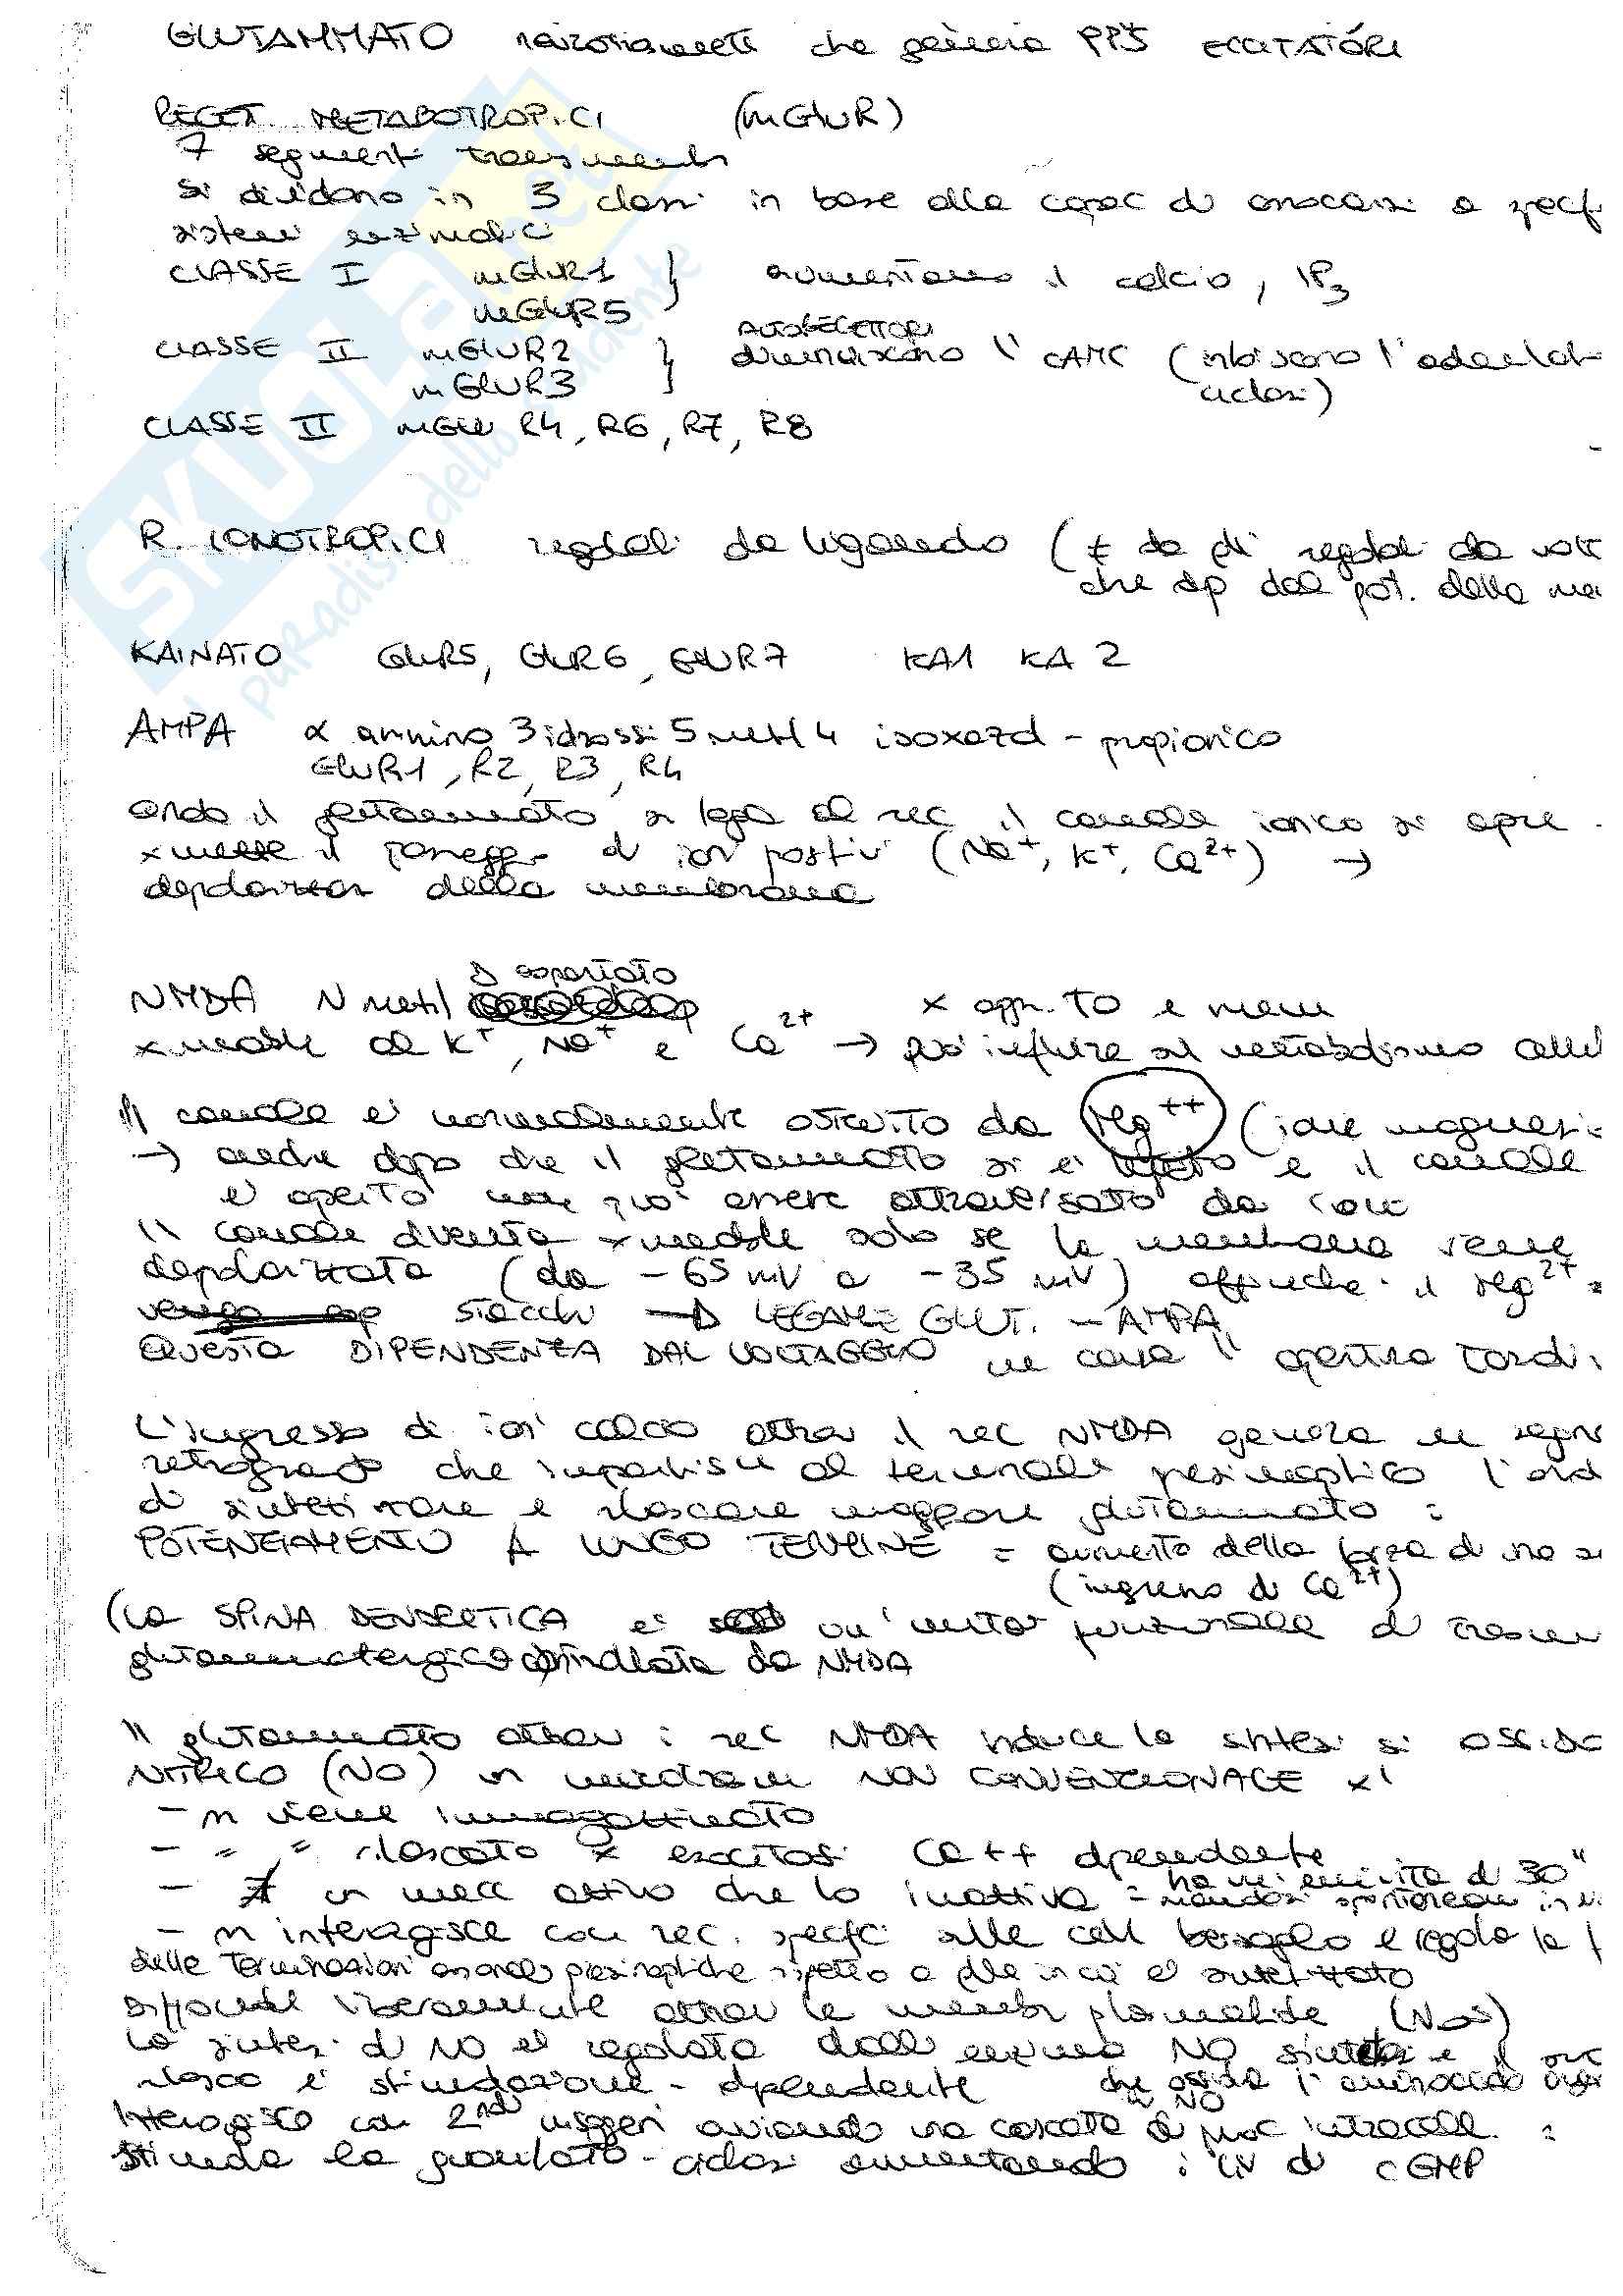 GLUTAMMATO neurotrasmett che genera PPS ECCITATORI
RECET. METABOTROPICI (mGluR)
7 segmenti transmembr
si dividono in 3 classi in base alla capac di associarsi a specif
sistemi enzimatici
CLASSE I mGluR1 } aumentano il calcio, IP3
mGluR5
AUTORECETTORI
CLASSE II mGLUR2 } diminuiscono l' cAMC (inbiscono l'adenilat
mGLUR3 ciclasi)
CLASSE II mGlu R4, R6, R7, R8
R. IONOTROPICI regolati da ligando (≠ da q.li regolati da volt
che dip dal pot. della me
KAINATO GluR5, GluR6, GluR7 KA1 KA2
AMPA α ammino 3 idrossi 5 metil 4 isoxazol - propionico
GluR1, R2, R3, R4
ando il glutammato si lega al rec il canale ionico si apre
xmette il passagg di ioni positivi (Na+, K+, Ca2+) →
depolarizzaz della membrana
D aspartato
NMDA N metil x app. TO e mem
xmeabile al K+, Na+ e Ca2+ → può influire sul metabolismo cellul
Il canale è normalmente ostruito da Mg++ (ione magnesi
→ anche dopo che il glutammato si è legato e il canale
è aperto non può essere attraversato da ioni
Il canale diventa xmeabile solo se la membrana viene
depolarizzata (da -65 mV a -35 mV) affinche il Mg2+ si
stacchi → LEGAME GLUT. - AMPA
Questa DIPENDENZA DAL VOLTAGGIO ne causa l' apertura tardi
L'ingresso di ioni calcio attrav il rec NMDA genera un segn
retrogrado che impartisce al terminale presinaptico l'ord
di sintetizzare e rilasciare maggiore glutammato :
POTENZIAMENTO A LUNGO TERMINE = aumento della forza di una si
(ingresso di Ca2+)
(La SPINA DENDRITICA è un'unità funzionale di trasm
glutammatergica controllata da NMDA
Il glutammato attrav i rec NMDA induce la sintesi si OSSIDO
NITRICO (NO) un mediatore NON CONVENZIONALE x'
- n viene immagazzinato
- = = rilasciato x esocitosi Ca++ dipendente
- ∄ un mecc attivo che lo inattiva = ha emivita di 30"
- n interagisce con rec. specfci alle cell bersaglio e regola la f
delle terminazioni assonali presinaptiche rispetto a q.lle in cui è sintetizzato
diffonde liberamente attrav le membr plasmatiche (NOS)
La sintesi di NO è regolata dall' enzima NO sintetasi e il suo
rilascio è stimolazione - dipendente che ossida l'amminoacido
in NO
Interagisce con 2nd messaggeri avviando una cascata di proc intracell. :
Stimola la guanilato - ciclasi aumentando i liv di cGMP